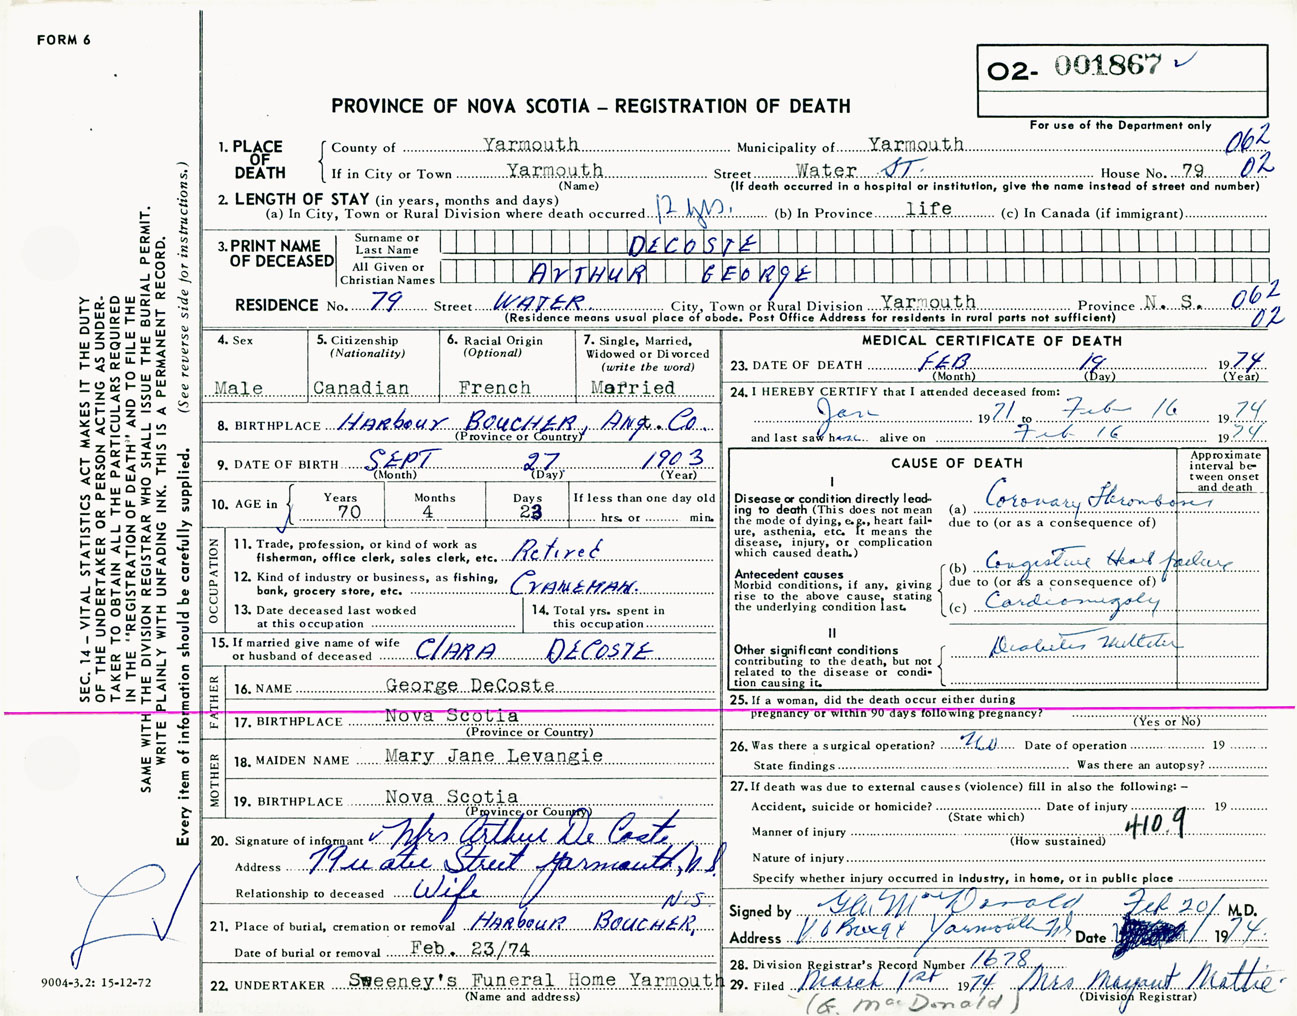 FORM 6
O2- 001867
PROVINCE OF NOVA SCOTIA – REGISTRATION OF DEATH
For use of the Department only
1. PLACE OF DEATH
County of Yarmouth Municipality of Yarmouth 062
If in City or Town Yarmouth Street Water ST. House No. 79 02
(Name) (If death occurred in a hospital or institution, give the name instead of street and number)
2. LENGTH OF STAY (in years, months and days)
(a) In City, Town or Rural Division where death occurred 12 yrs. (b) In Province life (c) In Canada (if immigrant)
3. PRINT NAME OF DECEASED
Surname or Last Name DECOSTE
All Given or Christian Names ArTHUR GEORGE
RESIDENCE No. 79 Street WATER City, Town or Rural Division Yarmouth Province N. S. 062
(Residence means usual place of abode. Post Office Address for residents in rural parts not sufficient) 02
4. Sex
Male
5. Citizenship (Nationality)
Canadian
6. Racial Origin (Optional)
French
7. Single, Married, Widowed or Divorced (write the word)
Married
8. BIRTHPLACE HArbour BOUCHER, Ant. Co.
(Province or Country)
9. DATE OF BIRTH SEPT 27 1903
(Month) (Day) (Year)
10. AGE in
Years Months Days If less than one day old
70 4 23 hrs. or min.
OCCUPATION
11. Trade, profession, or kind of work as fisherman, office clerk, sales clerk, etc. Retired
12. Kind of industry or business, as fishing, bank, grocery store, etc. CrANEMAN.
13. Date deceased last worked at this occupation
14. Total yrs. spent in this occupation
15. If married give name of wife or husband of deceased ClARA DECOSTE
FATHER
16. NAME George DeCoste
17. BIRTHPLACE Nova Scotia
(Province or Country)
MOTHER
18. MAIDEN NAME Mary Jane Levangie
19. BIRTHPLACE Nova Scotia
(Province or Country)
20. Signature of informant Mrs Arthur De Coste
Address 79 Water Street Yarmouth, N.S
Relationship to deceased Wife
N.S.
21. Place of burial, cremation or removal HArbour BOUCHER,
Date of burial or removal Feb. 23/74
22. UNDERTAKER Sweeney's Funeral Home Yarmouth
(Name and address)
MEDICAL CERTIFICATE OF DEATH
23. DATE OF DEATH FEB 19 1974
(Month) (Day) (Year)
24. I HEREBY CERTIFY that I attended deceased from:
Jan 1971 to Feb 16 1974
and last saw him alive on Feb 16 1974
CAUSE OF DEATH
Approximate interval between onset and death
I
Disease or condition directly leading to death (This does not mean the mode of dying, e.g., heart failure, asthenia, etc. It means the disease, injury, or complication which caused death.)
(a) Coronary Thrombosis
due to (or as a consequence of)
Antecedent causes
Morbid conditions, if any, giving rise to the above cause, stating the underlying condition last.
(b) Congestive Heart failure
due to (or as a consequence of)
(c) Cardiomegaly
II
Other significant conditions contributing to the death, but not related to the disease or condition causing it.
Diabetes Mellitus
25. If a woman, did the death occur either during pregnancy or within 90 days following pregnancy?
(Yes or No)
26. Was there a surgical operation? No Date of operation 19
State findings Was there an autopsy?
27. If death was due to external causes (violence) fill in also the following: –
Accident, suicide or homicide? Date of injury 19
(State which)
Manner of injury 410.9
(How sustained)
Nature of injury
Specify whether injury occurred in industry, in home, or in public place
Signed by MacDonald Feb 20/ M.D.
Address Yarmouth NS Date 1974.
28. Division Registrar's Record Number 1678
29. Filed March 1st 1974 Mrs Margaret Mattie
(Division Registrar)
(G. MacDonald)
SEC. 14 – VITAL STATISTICS ACT MAKES IT THE DUTY
OF THE UNDERTAKER OR PERSON ACTING AS UNDER-
TAKER TO OBTAIN ALL THE PARTICULARS REQUIRED
IN THE "REGISTRATION OF DEATH" AND TO FILE THE
SAME WITH THE DIVISION REGISTRAR WHO SHALL ISSUE THE BURIAL PERMIT.
WRITE PLAINLY WITH UNFADING INK. THIS IS A PERMANENT RECORD.
Every item of information should be carefully supplied. (See reverse side for instructions.)
9004-3.2: 15-12-72